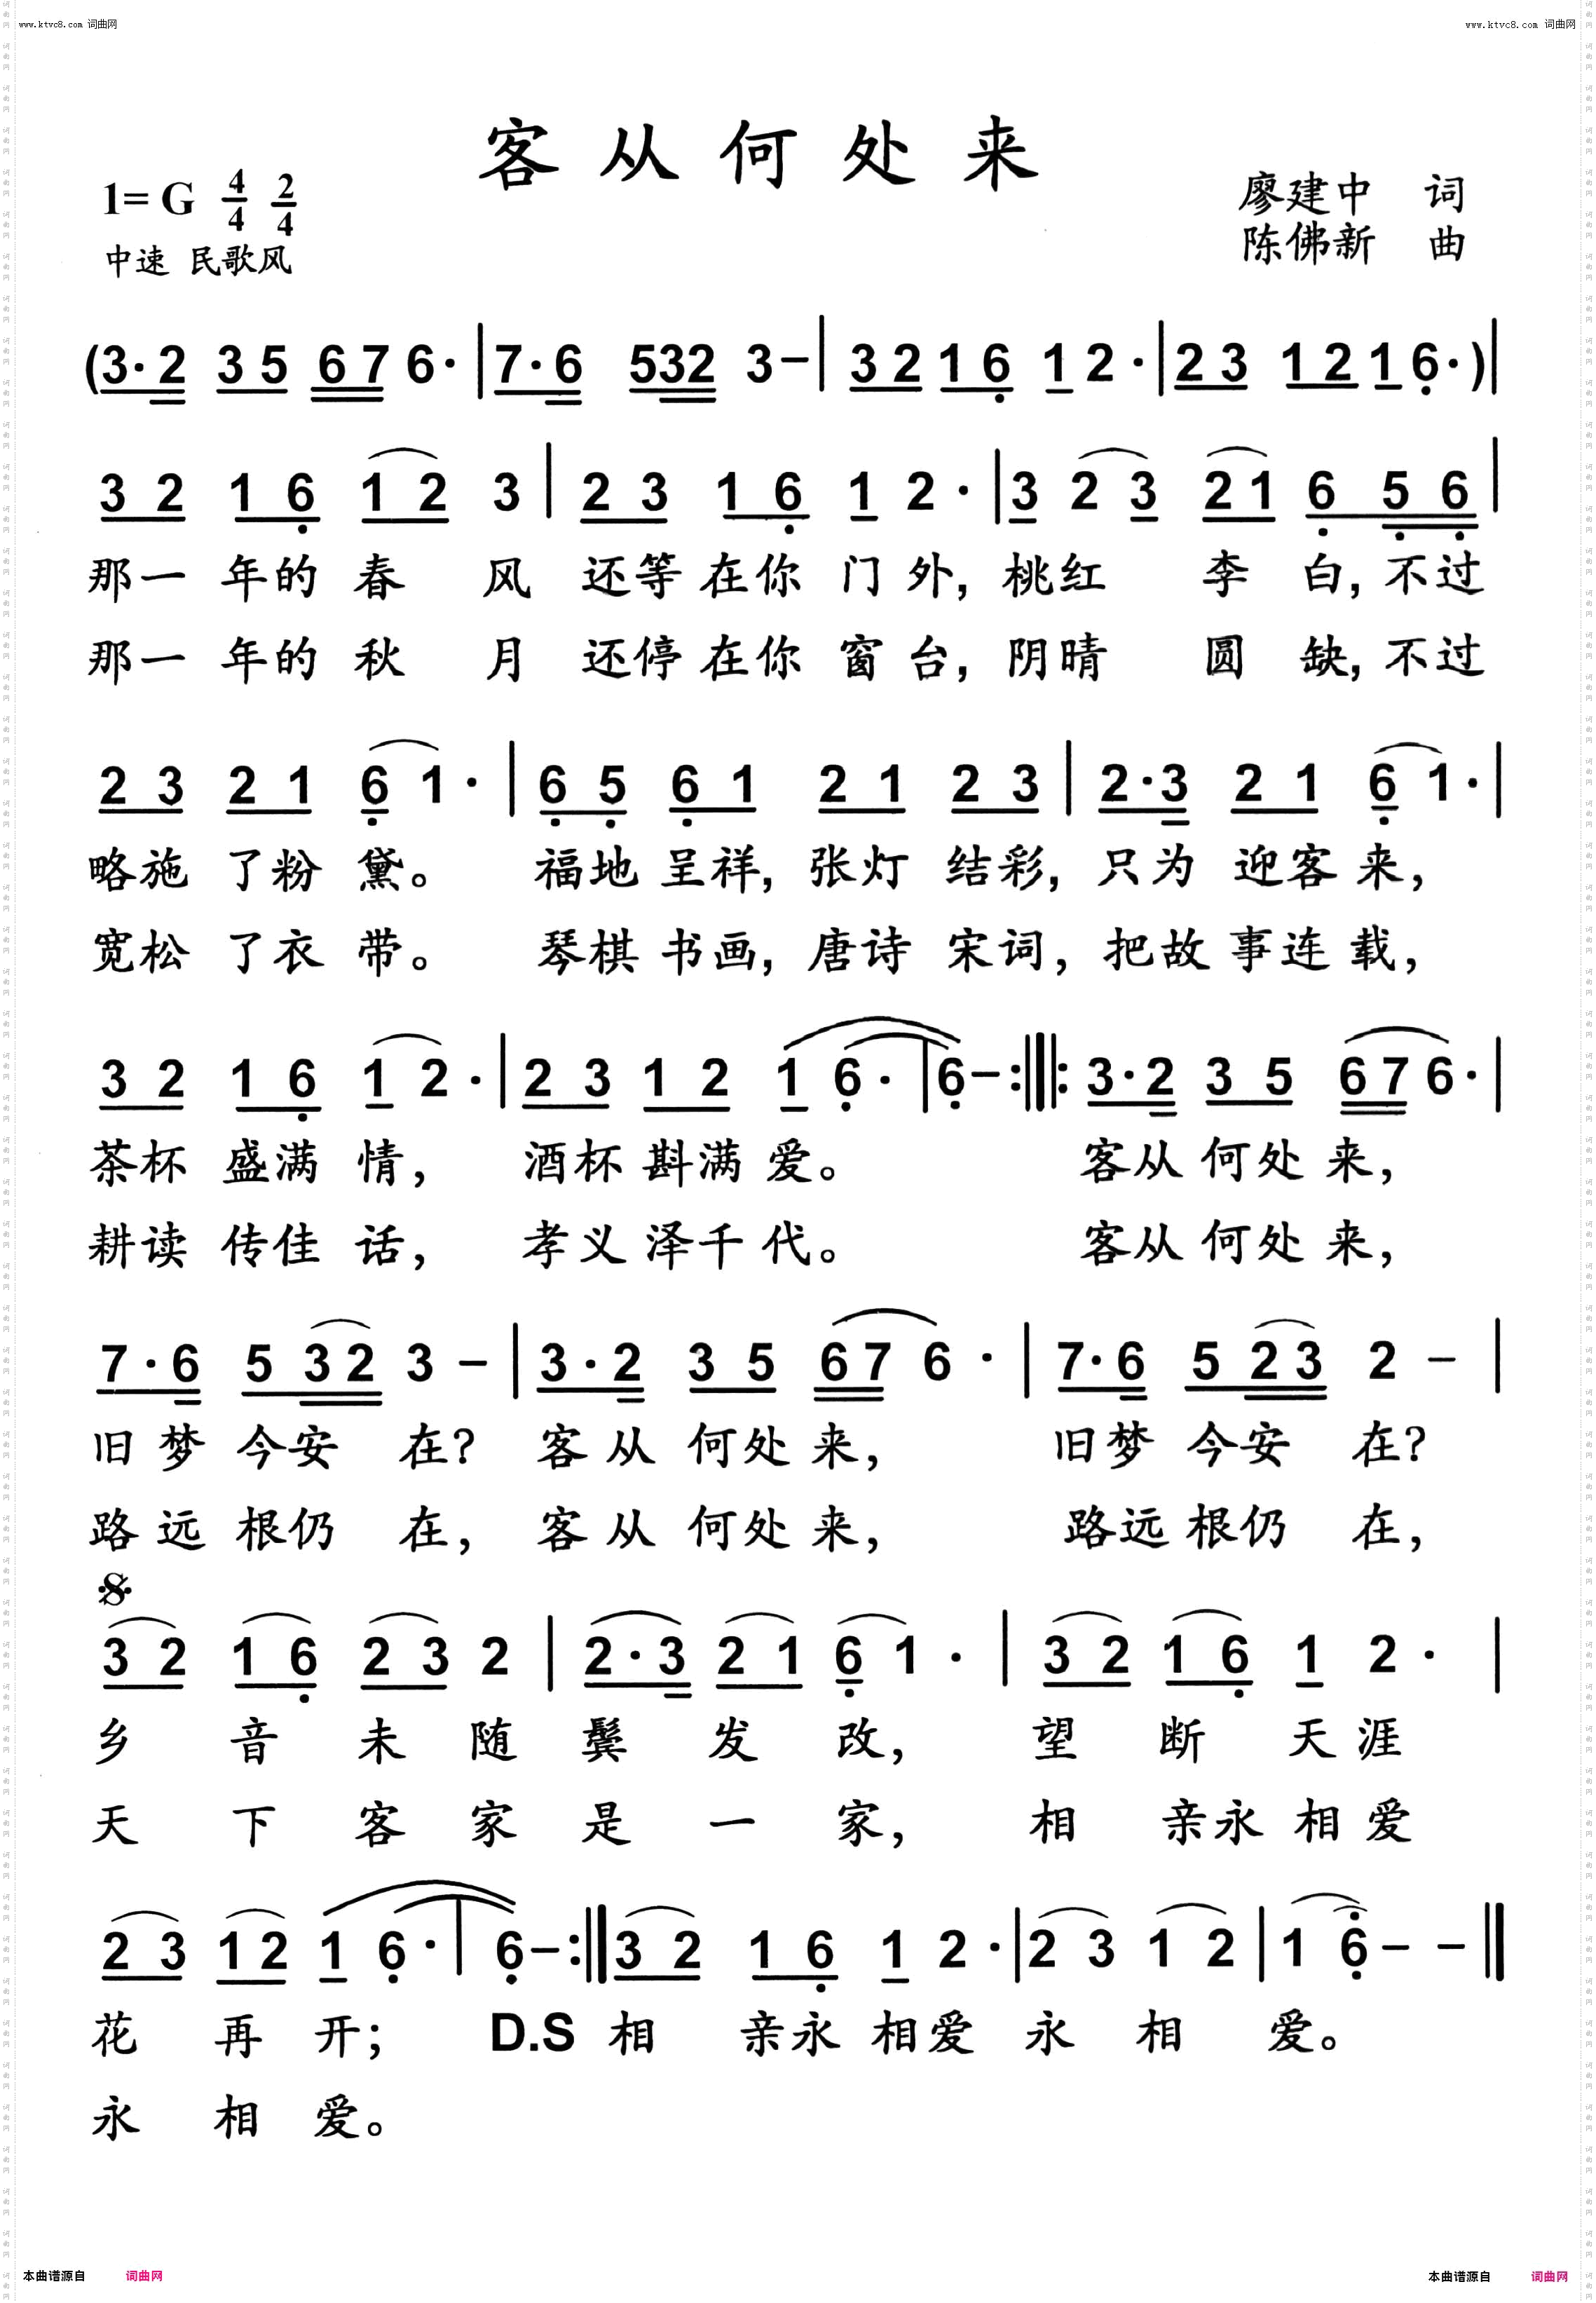 www.ktvc8.com 词曲网 www.ktvc8.com 词曲网
客从何处来
1=G 4/4 2/4 廖建中 词
中速 民歌风 陈佛新 曲
(3·2 35 67 6· | 7·6 532 3- | 32 16 1 2· | 23 12 1 6·) |
3 2 1 6 1 2 3 | 2 3 1 6 1 2· | 3 2 3 2 1 6 5 6 |
那一 年的 春 风 还等 在你 门 外, 桃红 李 白, 不过
那一 年的 秋 月 还停 在你 窗 台, 阴晴 圆 缺, 不过
2 3 2 1 6 1· | 6 5 6 1 2 1 2 3 | 2·3 2 1 6 1· |
略施 了粉 黛。 福地 呈祥, 张灯 结彩, 只为 迎客 来,
宽松 了衣 带。 琴棋 书画, 唐诗 宋词, 把故 事连 载,
3 2 1 6 1 2· | 2 3 1 2 1 6· | 6- :‖: 3·2 3 5 6 7 6· |
茶杯 盛满 情, 酒杯 斟满 爱。 客从 何处 来,
耕读 传佳 话, 孝义 泽千 代。 客从 何处 来,
7·6 5 3 2 3 - | 3·2 3 5 6 7 6· | 7·6 5 2 3 2 - |
旧梦 今安 在? 客从 何处 来, 旧梦 今安 在?
路远 根仍 在, 客从 何处 来, 路远 根仍 在,
3 2 1 6 2 3 2 | 2·3 2 1 6 1· | 3 2 1 6 1 2· |
乡 音 未 随 鬓 发 改, 望 断 天 涯
天 下 客 家 是 一 家, 相 亲永 相 爱
2 3 1 2 1 6· | 6- :‖ 3 2 1 6 1 2· | 2 3 1 2 | 1 6 - - ‖
花 再 开; D.S 相 亲永 相爱 永 相 爱。
永 相 爱。
本曲谱源自 词曲网 本曲谱源自 词曲网